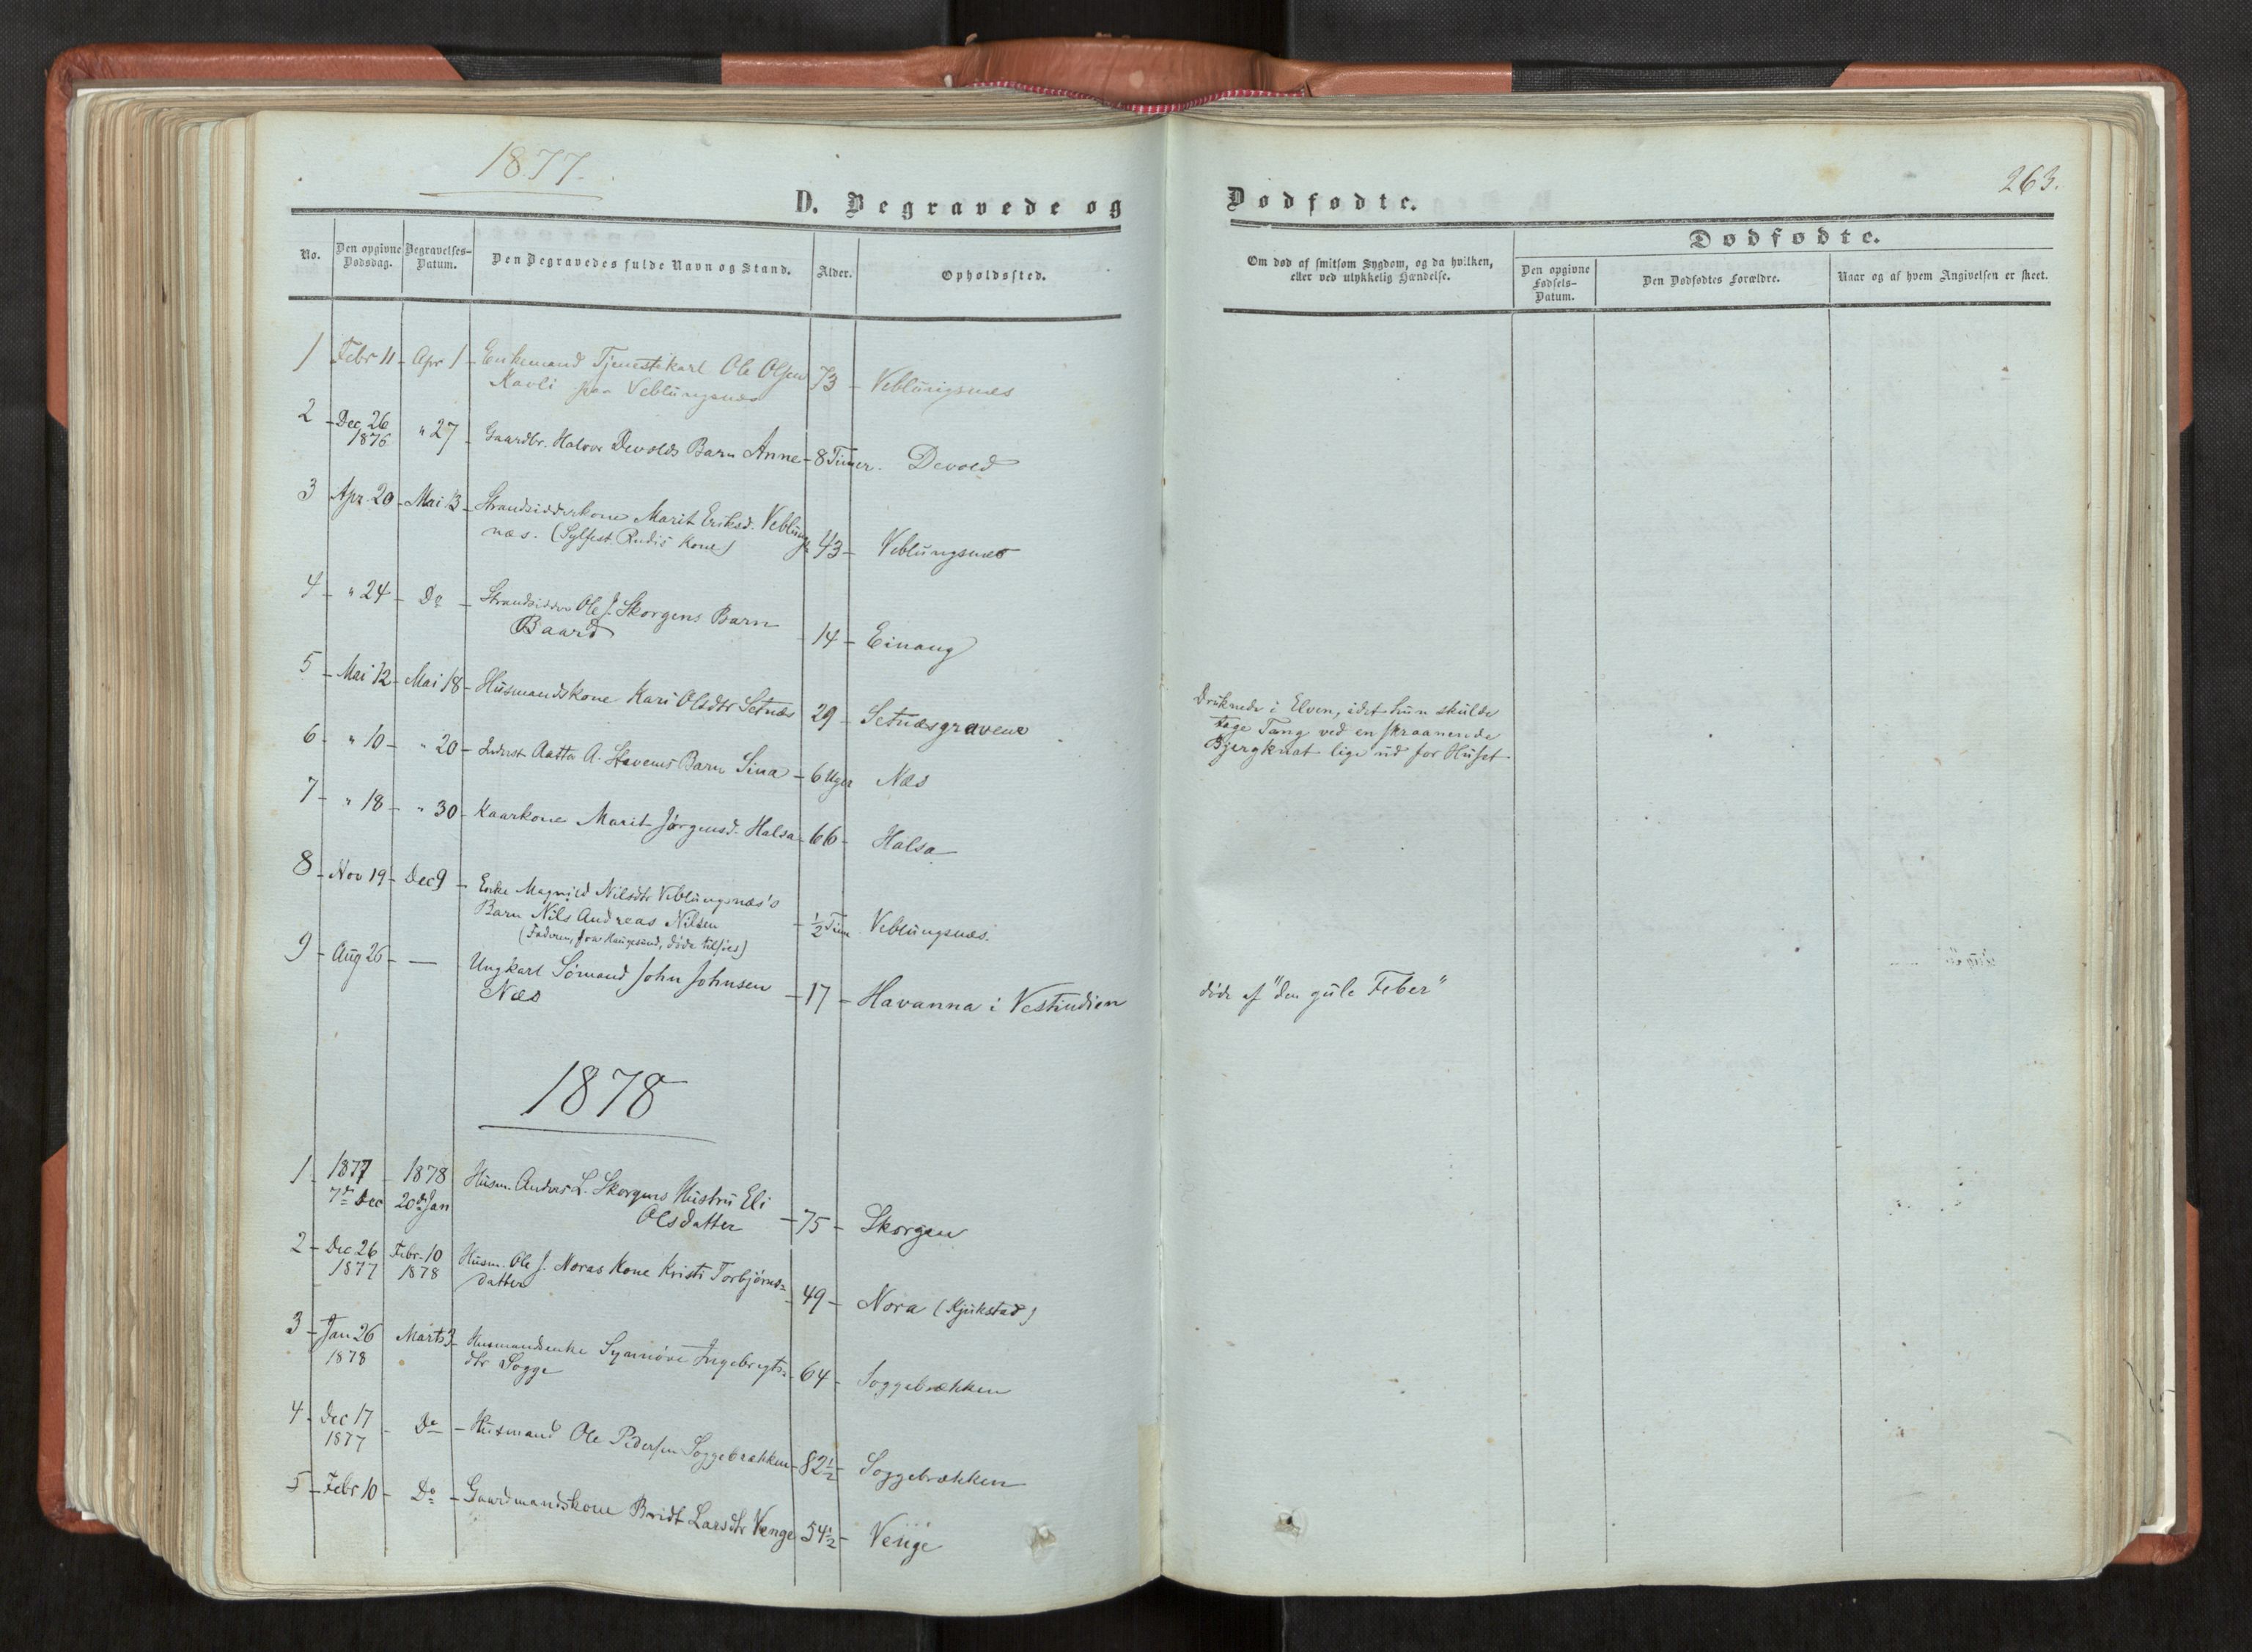 1877.
D. Begravede og
No.
Den opgivne Dødsdag.
Begravelses-Datum.
Den Begravedes fulde Navn og Stand.
Alder.
Opholdssted.
1 Febr 11 - Apr 1 - Enkemand Tjenestekarl Ole Olsen 73 - Veblungsnes
Kavli paa Veblungsnes
2 - Dec 26 " 27 - Gaardbr. Halvor Devolds Barn Anne - 8 Timer. Devold
1876
3 Apr 20 - Mai 13 - Strandsidderkone Marit Eriksd. Veblungs
næs. (Sylfest Rødis Kone) 43 - Veblungsnæs
4 - " 24 - Do - Strandsidder Ole J. Skorgens Barn
Baard 14 - Einang
5 - Mai 12 - Mai 18 - Husmandskone Kari Olsdtr Setnæs 29 - Setnæsgravene
6 - " 10 - " 20 - Inderst A. Stavems Barn Sina - 6 Uger Næs
7 - " 18 - " 30 - Kaarkone Marit Jørgensd. Halsa 66 - Halsa
8 - Nov 19 - Dec 9 - Enke Magnild Nilsdtr Veblungsnæs's
Barn Nils Andreas Nilsen - ½ Time Veblungsnæs.
(Faderen, fra Haugesund, døde tilsjøs)
9 - Aug 26 - — Ungkarl Sømand John Johnsen
Næs - 17 - Havanna i Vestindien
1878
1 - 1877 - 1878 Husm. Anders L. Skorgens Hustru Eli
7de Dec 20de Jan Olsdatter - 75 - Skorgen
2 - Dec 26 Febr. 10 Husm. Ole J. Noras Kone Kristi Torbjørns=
1877 1878 datter - 49 - Nora (Kjukstad)
3 - Jan 26 Marts 3 - Husmandsenke Synnøve Ingebrigts=
1878 dtr Sogge 64 - Soggebrækken
4 - Dec 17 - Do - Husmand Ole Pedersen Soggebrækken - 82½ - Soggebrækken
1877
5 - Febr 10 - Do - Gaardmandskone Bridt Larsdtr Venge 54½ - Venge
263.
Dødfødte.
Om død af smitsom Sygdom, og da hvilken,
eller ved ulykkelig Hændelse.
Dødfødte.
Den opgivne Fødsels-Datum.
Den Dødfødtes Forældre.
Naar og af hvem Angivelsen er skeet.
Druknede i Elven, idet hun skulde
tage Tang ved en skraanende
Bjergknat lige ud for Huset.
døde af "den gule Feber"